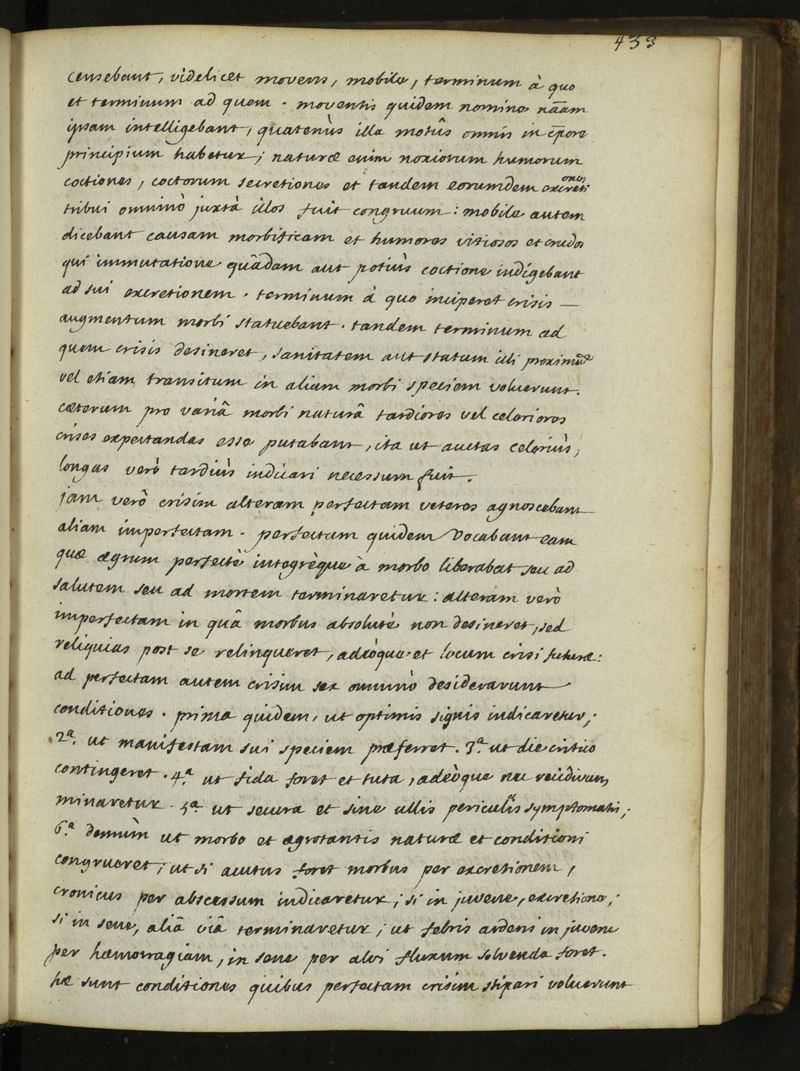 433
censebant, videlicet movens, mobile, terminum à quo
et terminum ad quem. moventis quidem nomine nããm
ipsam intelligebant, quatenùs illa motûs omnis in cp̄ore
principium habetur; naturæ enim noxiorum humorum
coctiones, coctorum secretiones et tandem eorumdem excreti
ones
tribui omninò juxtà illos fuit congruum: mobile autem
dicebant causam morbificam et humores vitiosos et crudos
qui immutatione quâdam aut potiùs coctione indigebant
ad sui excretionem. terminum à quo inciperet crisis —
augmentum morbi statuebant. tandem terminum ad
quem crisis desineret, sanitatem aut statum illi proximum
vel etiam transitum in aliam morbi speciem voluerunt.
cæterum pro variâ morbi naturâ tardiores vel celeriores
crises expectandas esse putabant, ita ut acutas celeriùs,
longas verò tardiùs indicari necessum fuit.
jam verò crisim alteram perfectam veteres agnoscebant
aliam imperfectam. perfectam quidem vocabant eam
quæ ægrum perfectè integrèque à morbo liberabat seu ad
salutem seu ad mortem terminaretur: alteram verò
imperfectam in quâ morbus absolutè non desineret, sed
reliquias post se relinqueret, adeòque et locum crisi futuræ:
ad perfectam autem crisim sex omninò desiderarunt
conditiones. prima quidem, ut optimis signis indicaretur;
2ª. ut manifestam sui speciem præferret. 3ª. ut die critico
contingeret. 4ª. ut fida foret et tuta, adeòque nec recidivam
minaretur. 5ª ut secura et sine ullis periculis symptomatis;
6ª demùm ut morbo et ægrotantis naturæ et conditioni
congrueret; ut si acutus foret morbus per excretionem,
cronicus per abscessum indicaretur; si in juvene, excretione;
si in sene, aliâ viâ terminaretur; ut febris ardens in juvene
per hæmorragiam, in sene per alvi fluxum solvenda foret.
hæ sunt conditiones quibus perfectam crisim stipari voluerunt